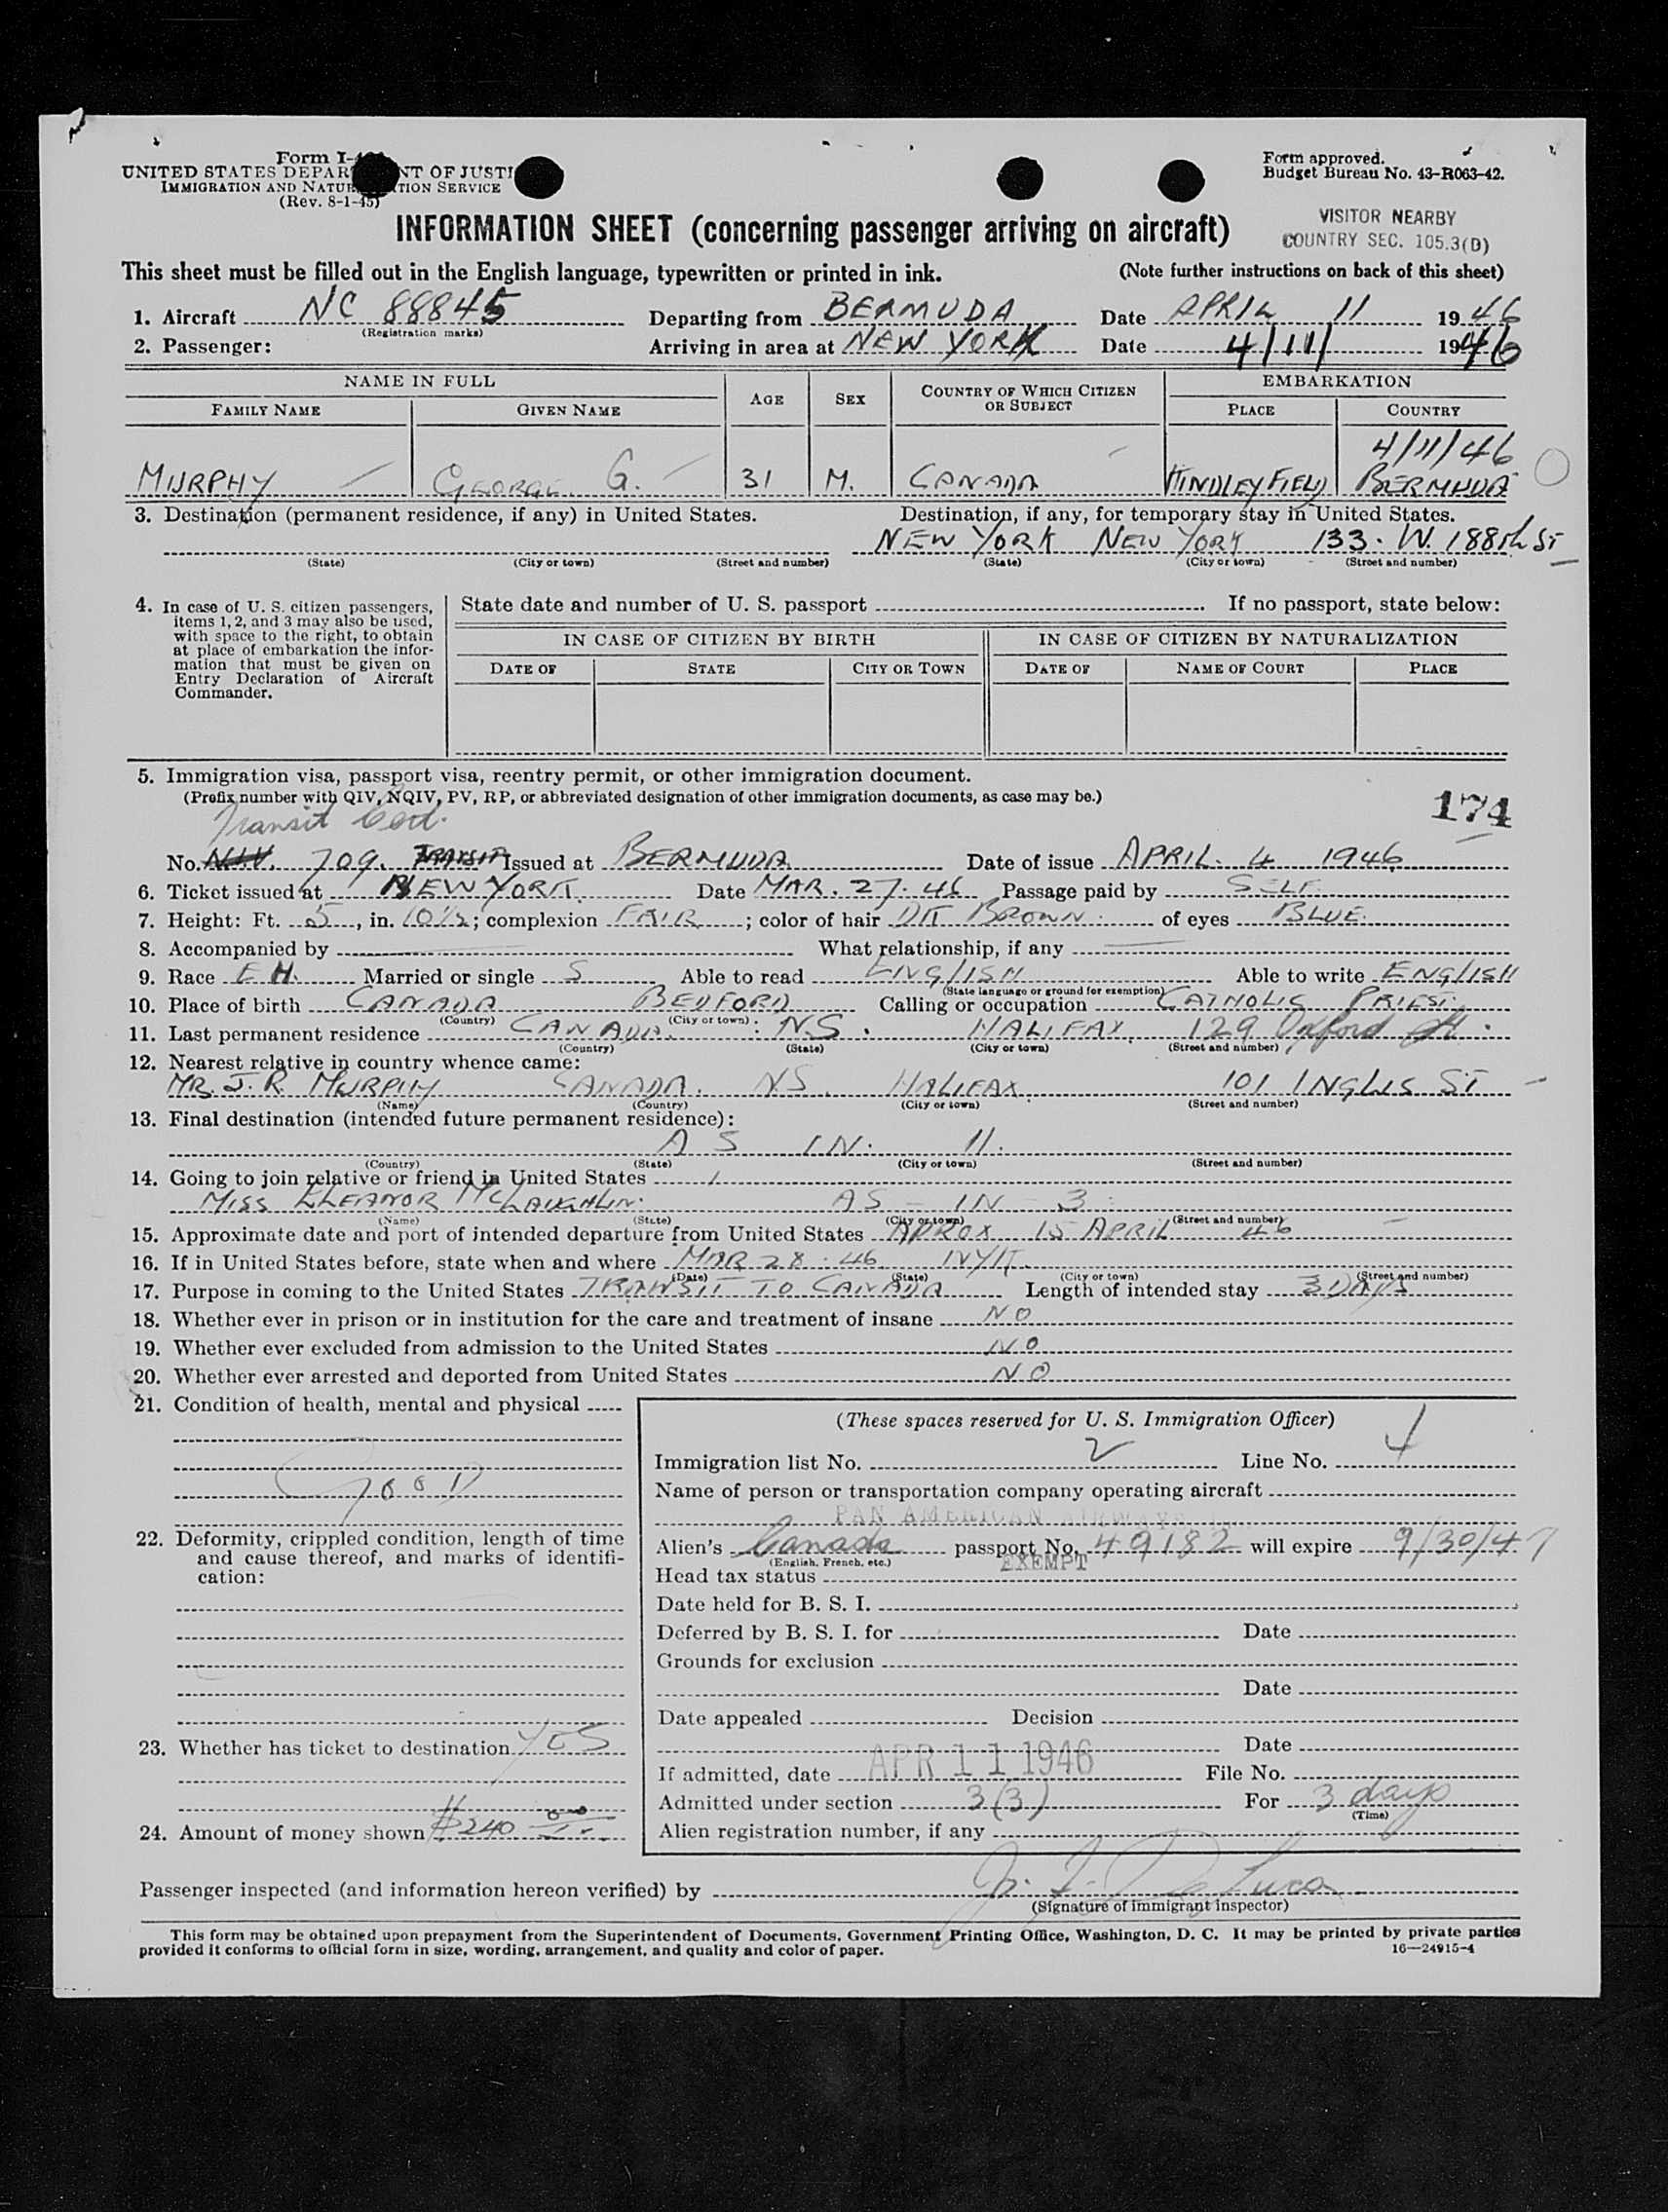 Form I-
UNITED STATES DEPAR NT OF JUSTI
IMMIGRATION AND NATUR TION SERVICE
(Rev. 8-1-45)
Form approved.
Budget Bureau No. 43-R063-42.
VISITOR NEARBY
COUNTRY SEC. 105.3(D)
INFORMATION SHEET (concerning passenger arriving on aircraft)
This sheet must be filled out in the English language, typewritten or printed in ink. (Note further instructions on back of this sheet)
1. Aircraft NC 88845 Departing from BERMUDA Date APRIL 11 1946
(Registration marks)
2. Passenger: Arriving in area at NEW YORK Date 4/11/ 1946
NAME IN FULL AGE SEX COUNTRY OF WHICH CITIZEN OR SUBJECT EMBARKATION
FAMILY NAME GIVEN NAME PLACE COUNTRY
4/11/46
MURPHY GEORGE G. 31 M. CANADA KINDLEY FIELD BERMUDA
3. Destination (permanent residence, if any) in United States. Destination, if any, for temporary stay in United States.
NEW YORK NEW YORK 133. W. 188th ST
(State) (City or town) (Street and number) (State) (City or town) (Street and number)
4. In case of U. S. citizen passengers, items 1, 2, and 3 may also be used, with space to the right, to obtain at place of embarkation the information that must be given on Entry Declaration of Aircraft Commander.
State date and number of U. S. passport If no passport, state below:
IN CASE OF CITIZEN BY BIRTH IN CASE OF CITIZEN BY NATURALIZATION
DATE OF STATE CITY OR TOWN DATE OF NAME OF COURT PLACE
5. Immigration visa, passport visa, reentry permit, or other immigration document.
(Prefix number with QIV, NQIV, PV, RP, or abbreviated designation of other immigration documents, as case may be.)
174
Transit Cert.
No. N.I.V. 709. TRANSIT Issued at BERMUDA Date of issue APRIL. 4 1946
6. Ticket issued at NEW YORK. Date MAR. 27. 46 Passage paid by SELF
7. Height: Ft. 5, in. 10½; complexion FAIR; color of hair DK BROWN. of eyes BLUE.
8. Accompanied by What relationship, if any
9. Race E H. Married or single S Able to read ENGLISH Able to write ENGLISH
(State language or ground for exemption)
10. Place of birth CANADA BEDFORD Calling or occupation CATHOLIC PRIEST.
(Country) (City or town)
11. Last permanent residence CANADA. N.S. HALIFAX. 129 Oxford St.
(Country) (State) (City or town) (Street and number)
12. Nearest relative in country whence came:
MR. J. R. MURPHY CANADA. N.S. HALIFAX. 101 INGLIS ST
(Name) (Country) (City or town) (Street and number)
13. Final destination (intended future permanent residence):
AS IN. 11.
(Country) (State) (City or town) (Street and number)
14. Going to join relative or friend in United States
MISS ELEANOR McLAUGHLIN. AS - IN - 3
(Name) (State) (City or town) (Street and number)
15. Approximate date and port of intended departure from United States APROX 15 APRIL 46
16. If in United States before, state when and where MAR 28. 46 NYK.
(Date) (State) (City or town) (Street and number)
17. Purpose in coming to the United States TRANSIT TO CANADA Length of intended stay 3 DAYS
18. Whether ever in prison or in institution for the care and treatment of insane NO
19. Whether ever excluded from admission to the United States NO
20. Whether ever arrested and deported from United States NO
21. Condition of health, mental and physical
GOOD
22. Deformity, crippled condition, length of time and cause thereof, and marks of identification:
23. Whether has ticket to destination YES
24. Amount of money shown $240 00
(These spaces reserved for U. S. Immigration Officer)
Immigration list No. 2 Line No. 4
Name of person or transportation company operating aircraft
PAN AMERICAN AIRWAYS
Alien's Canada passport No. 49182 will expire 9/30/47
(English, French, etc.)
EXEMPT
Head tax status
Date held for B. S. I.
Deferred by B. S. I. for Date
Grounds for exclusion
Date
Date appealed Decision
Date
If admitted, date APR 11 1946 File No.
Admitted under section 3(3) For 3 days
(Time)
Alien registration number, if any
Passenger inspected (and information hereon verified) by J. F. De Luca
(Signature of immigrant inspector)
This form may be obtained upon prepayment from the Superintendent of Documents, Government Printing Office, Washington, D. C. It may be printed by private parties
provided it conforms to official form in size, wording, arrangement, and quality and color of paper. 16—24915-4